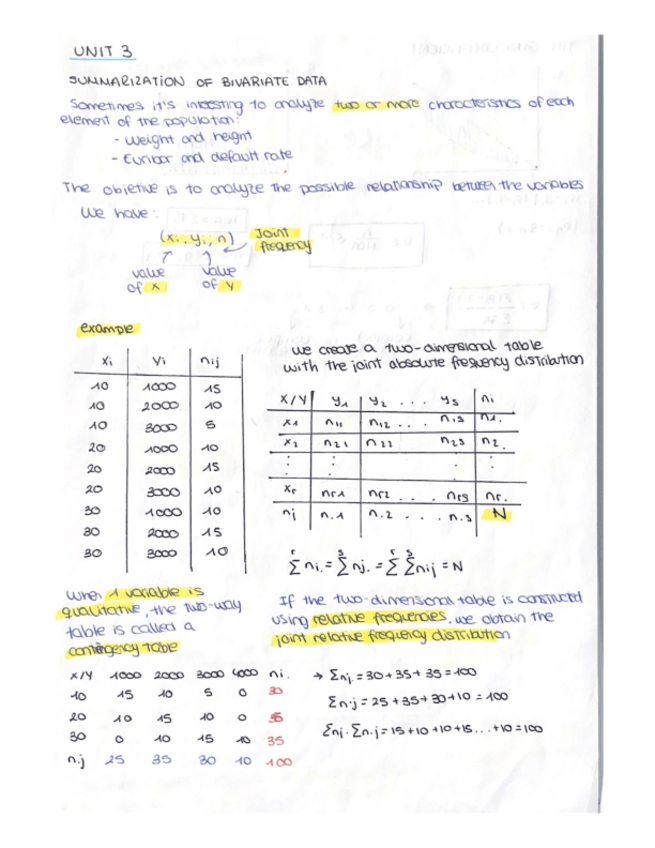 UNIT 3
SUMMARIZATION OF BIVARIATE DATA
Sometimes it's interesting to analyze two or more characteristics of each
element of the population:
- Weight and height
- Euribor and default rate
The objetive is to analyze the possible relationship between the variables
We have:
(xi, yi, n) Joint
frequency
value value
of X of Y
example
xi yi nij
10 1000 15
10 2000 10
10 3000 5
20 1000 10
20 2000 15
20 3000 10
30 1000 10
30 2000 15
30 3000 10
We create a two-dimensional table
with the joint absolute frequency distribution
X/Y y1 y2 ... ys ni
x1 n11 n12 ... n1s n1.
x2 n21 n22 n2s n2.
: : : :
xr nr1 nr2 ... nrs nr.
nj n.1 n.2 ... n.s N
r∑ ni. = s∑ nj. = r∑ s∑ nij = N
When 1 variable is
qualitative, the two-way
table is called a
contingency table
If the two-dimensional table is constructed
using relative frequencies, we obtain the
joint relative frequency distribution
X/Y 1000 2000 3000 4000 ni.
10 15 10 5 0 30
20 10 15 10 0 35
30 0 10 15 10 35
n.j 25 35 30 10 100
→ Σnj. = 30+35+35=100
Σn.j = 25+35+30+10 = 100
Σnj. Σn.j = 15+10+10+15...+10=100